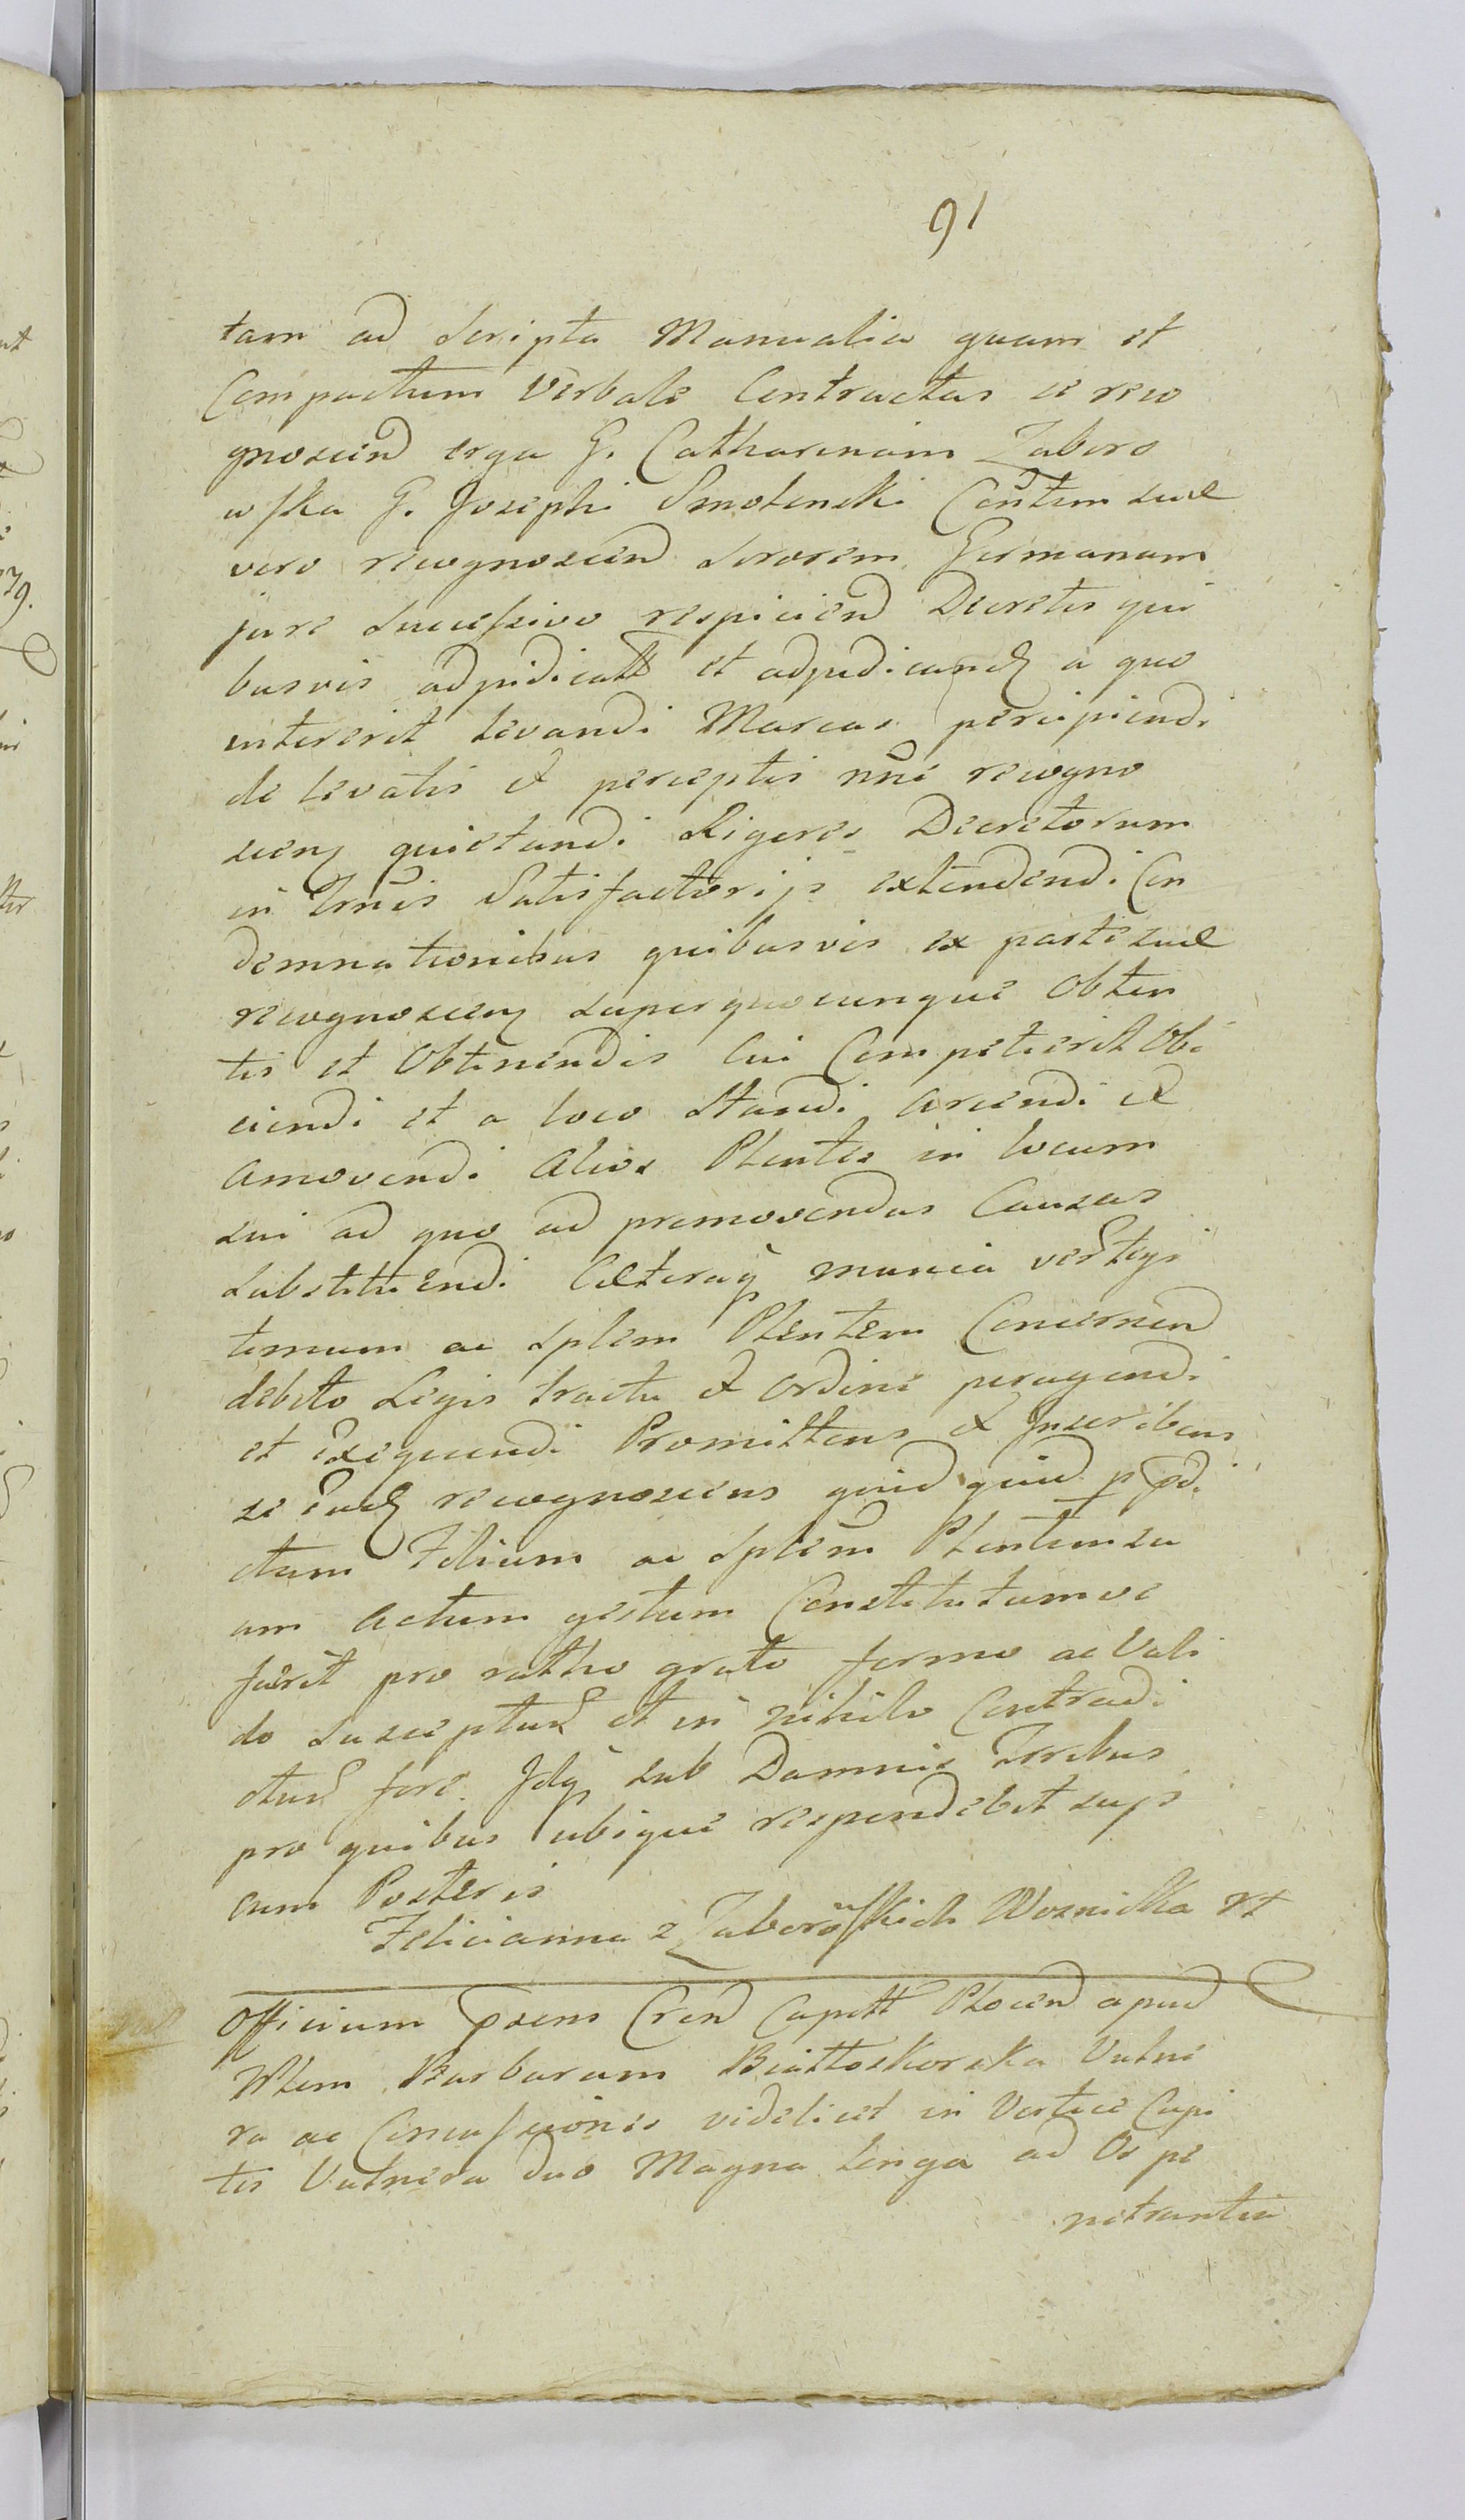 91
tam ad Scripta Manualia quam et
Compactum Verbale Contractus a reco
gnoscend erga G. Catharinam Zaboro
wska G. Josephi Smolenski Contem suae
vero recognoscend Sororem Germanam
jure Successivo respiciend Decretis qui
busvis adjudicatt et adjudicand a quo
intererit levandi Marcas percipiendi
de levatis et perceptis nnĩe recogno
scen quietandi Rigores Decretorum
in Trnis Satisfactorijs extendendi Con
demnationibus quibusvis ex parte suae
recognoscen super quocunque obten
tis et Obtinendis Cui Competierit Obi
ciendi et a loco Standi arcendi et
amovendi Alios Plentes in locum
sui ad quo ad promovendas Causas
Substituendi Caeteraq munia
timum ac Splem Plentem Concernen
debito Legis tractu et ordine peragendi
et Exequendi Promittens et Inscribens
se ead recognoscens quid quid p pdi
ctum Filium ac Splem Plentem su
um actum gestum Constitutumve
fuerit pro ratho grato firmo ac Vali
do Susceptur et in nihilo Contradi
ctur fore. Idq sub Damnis Trribus
pro quibus ubique respondebit sups
cum Posteris
Felicianna z Zaborowskich Woznicka
Officium Praens Cren Captt Plocen apud
Mlem Barbaram Białłoskorska Vulne
ra ac Concussiones videlicet in Vertice Capi
tis Vulnera duo Magna longa ad Os pe
netrantia